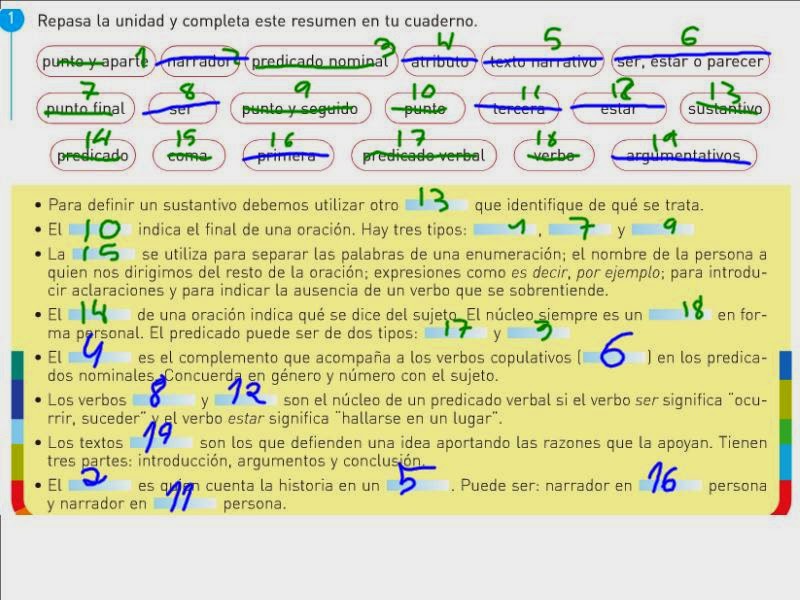 1 Repasa la unidad y completa este resumen en tu cuaderno.
punto y aparte 1 narrador 2 predicado nominal 3 atributo 4 texto narrativo 5 ser, estar o parecer 6
punto final 7 ser 8 punto y seguido 9 punto 10 tercera 11 estar 12 sustantivo 13
predicado 14 coma 15 primera 16 predicado verbal 17 verbo 18 argumentativos 19
• Para definir un sustantivo debemos utilizar otro 13 que identifique de qué se trata.
• El 10 indica el final de una oración. Hay tres tipos: 1, 7 y 9
• La 15 se utiliza para separar las palabras de una enumeración; el nombre de la persona a
quien nos dirigimos del resto de la oración; expresiones como es decir, por ejemplo; para introdu-
cir aclaraciones y para indicar la ausencia de un verbo que se sobrentiende.
• El 14 de una oración indica qué se dice del sujeto. El núcleo siempre es un 18 en for-
ma personal. El predicado puede ser de dos tipos: 17 y 3
• El 4 es el complemento que acompaña a los verbos copulativos (6) en los predica-
dos nominales. Concuerda en género y número con el sujeto.
• Los verbos 8 y 12 son el núcleo de un predicado verbal si el verbo ser significa "ocu-
rrir, suceder" y el verbo estar significa "hallarse en un lugar".
• Los textos 19 son los que defienden una idea aportando las razones que la apoyan. Tienen
tres partes: introducción, argumentos y conclusión.
• El 2 es quien cuenta la historia en un 5. Puede ser: narrador en 16 persona
y narrador en 11 persona.